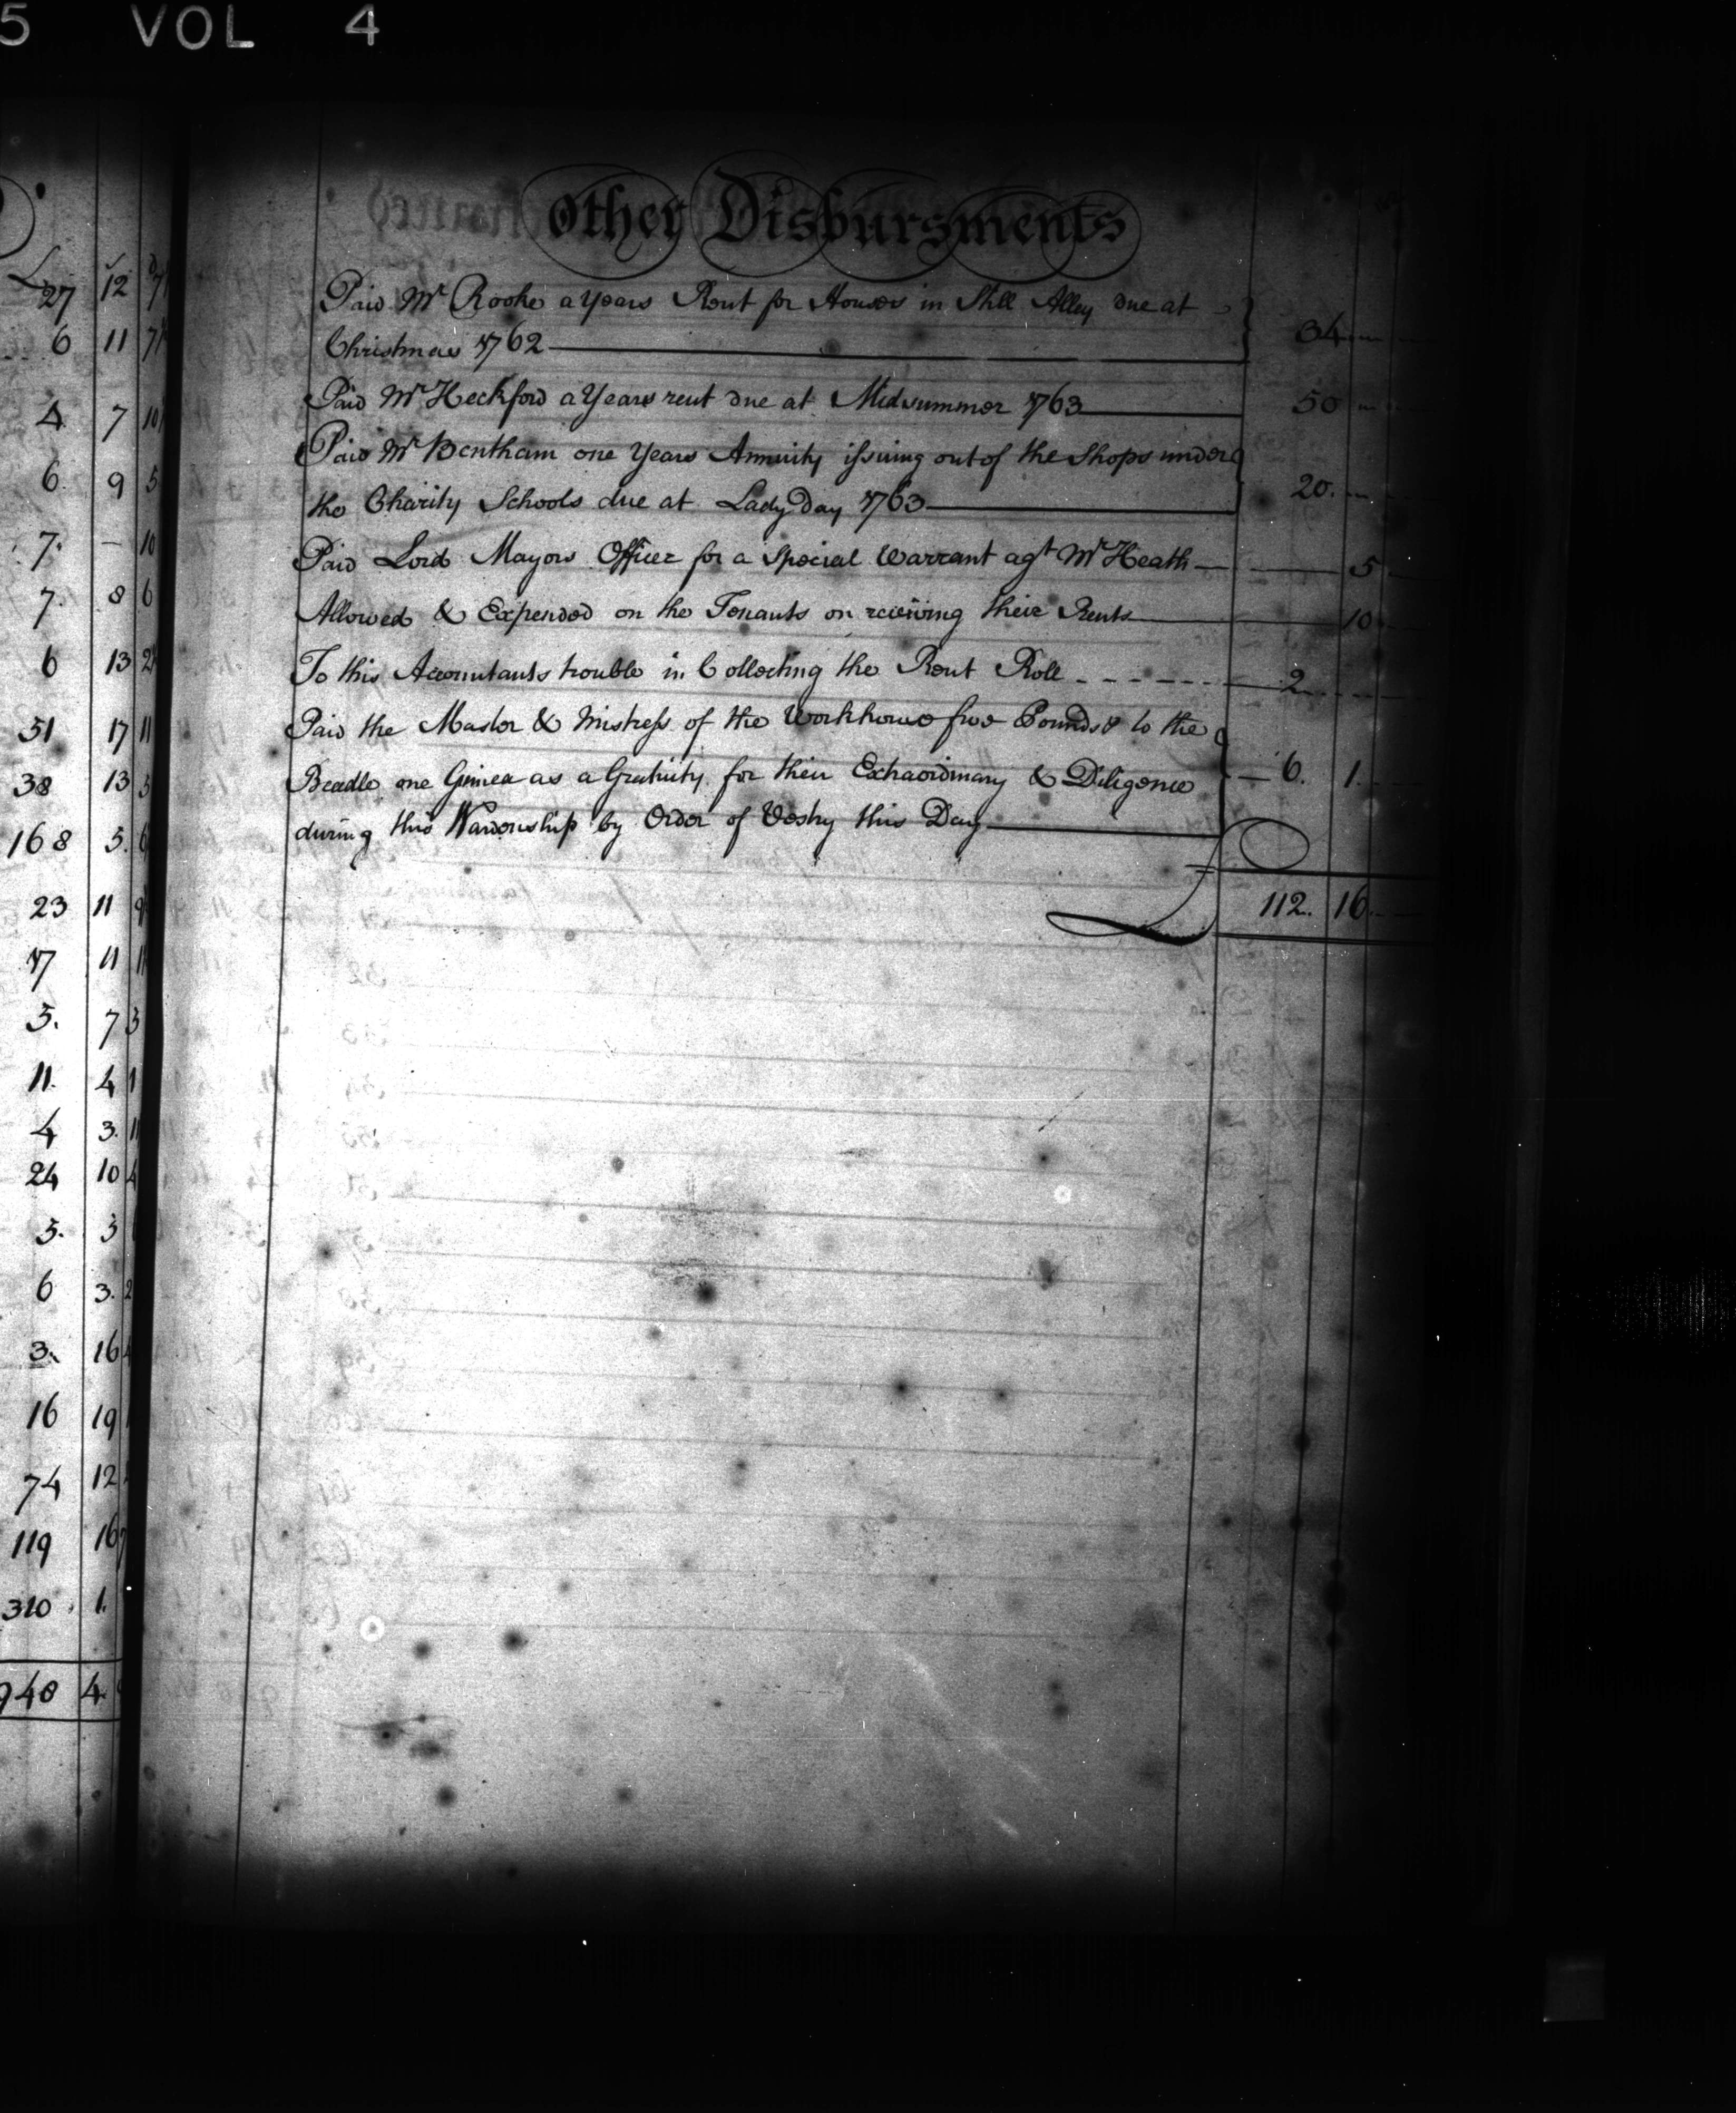 5 VOL 4
L
27 12 7
6 11 7
4 7 10
6. 9 5
7. — 10
7. 8 6
6 13 2
51 17 11
38 13 3
168 5. 6
23 11 9
17 11 11
5. 7 3
11. 4 1
4 3. 11
24 10 4
5. 3
6 3. 2
3. 16 4
16 19
74 12
119 16 7
310 1.
940 4.
Other Disbursments
Paid Mr Rooke a Years Rent for Houses in Still Alley due at
Christmas 1762 34
Paid Mr Heckford a Years rent due at Midsummer 1763 50
Paid Mr Bentham one Years Annuity issuing out of the Shops under
the Charity Schools due at Lady Day 1763 20.
Paid Lord Mayors Officer for a Special Warrant agt Mr Heath 5
Allowed & Expended on the Tenants on receiving their Rents 10
To this Accountants trouble in Collecting the Rent Roll 2
Paid the Master & Mistress of the Workhouse five Pounds & to the
Beadle one Guinea as a Gratuity for their Extraordinary & Diligence 6. 1.
during this Wardenship by Order of Vestry this Day
112. 16.